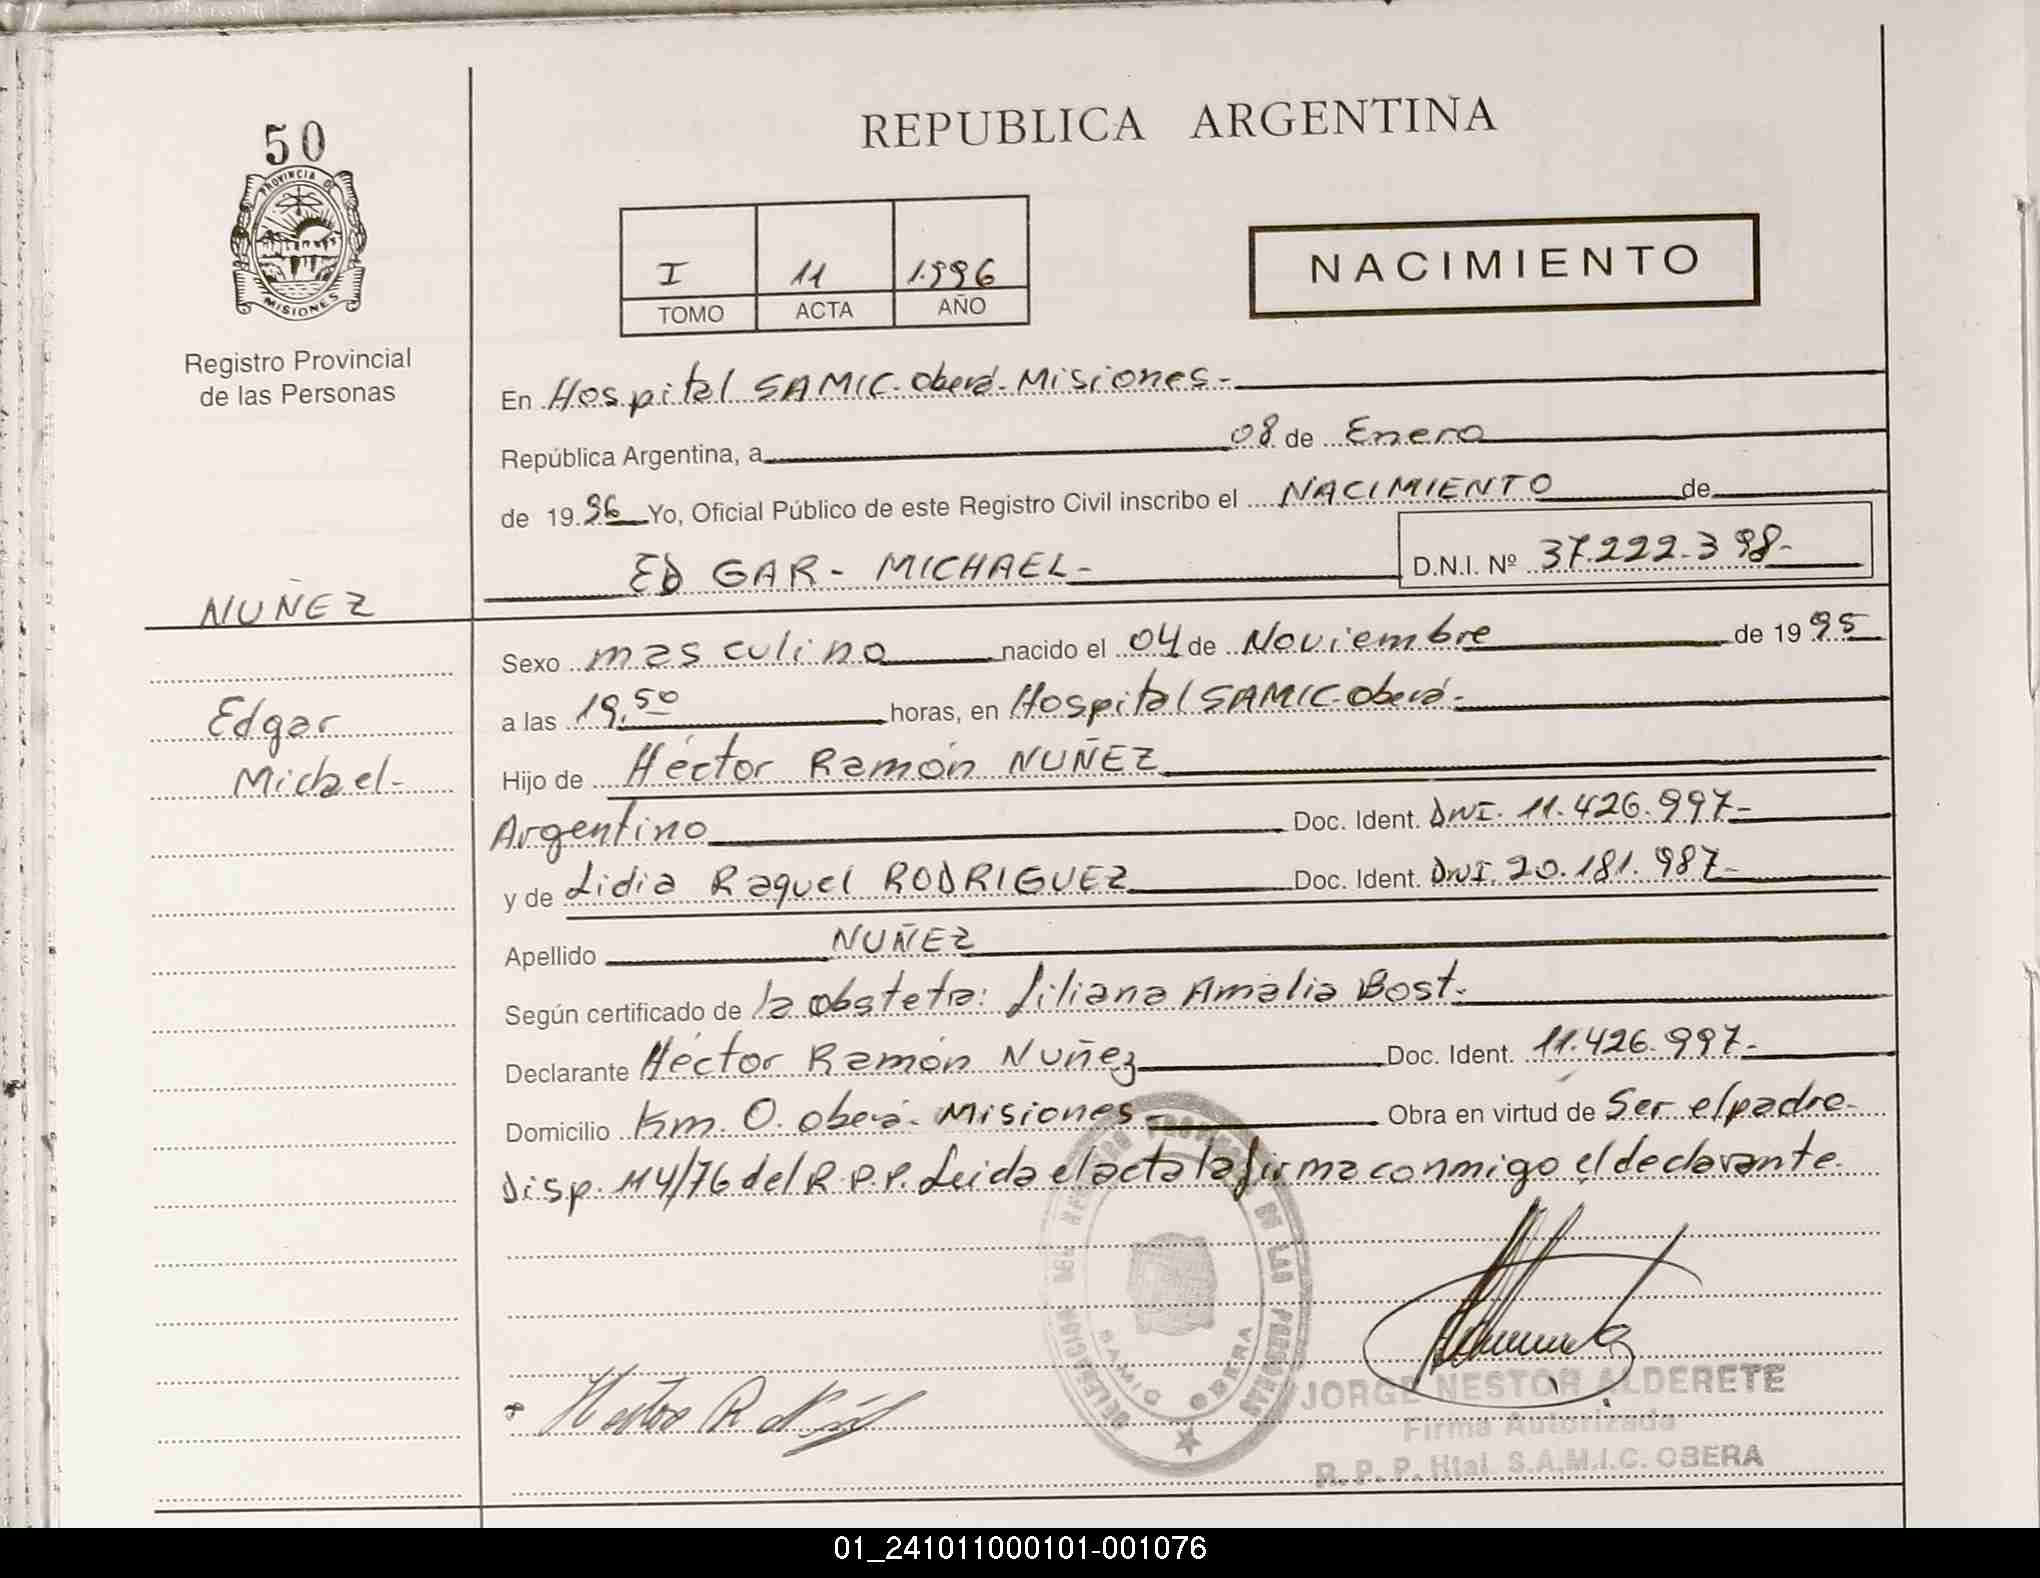 50
PROVINCIA DE
MISIONES
Registro Provincial
de las Personas
REPUBLICA ARGENTINA
I 11 1.996
TOMO ACTA AÑO
NACIMIENTO
En Hospital SAMIC-Oberá-Misiones-
República Argentina, a 08 de Enero
de 19 96 Yo, Oficial Público de este Registro Civil inscribo el NACIMIENTO de
EDGAR - MICHAEL-
D.N.I. Nº 37.222.398-
NUÑEZ
Edgar
Michael-
Sexo masculino nacido el 04 de Noviembre de 19 95
a las 19,50 horas, en Hospital SAMIC-Oberá-
Hijo de Héctor Ramón NUÑEZ
Argentino Doc. Ident. DNI. 11.426.997-
y de Lidia Raquel RODRIGUEZ Doc. Ident. DNI. 20.181.987-
Apellido NUÑEZ
Según certificado de la obstetra: Liliana Amalia Bost.
Declarante Héctor Ramón Nuñez Doc. Ident. 11.426.997-
Domicilio Km. 0. Oberá- Misiones- Obra en virtud de Ser el padre-
Disp. 114/76 del R.P.P. Leida el acta la firma conmigo el declarante.
DELEGACION DEL REGISTRO PROVINCIAL DE LAS PERSONAS
SAMIC OBERA
JORGE NESTOR ALDERETE
Firma Autorizada
R.P.P. Htal. S.A.M.I.C. OBERA
01_241011000101-001076